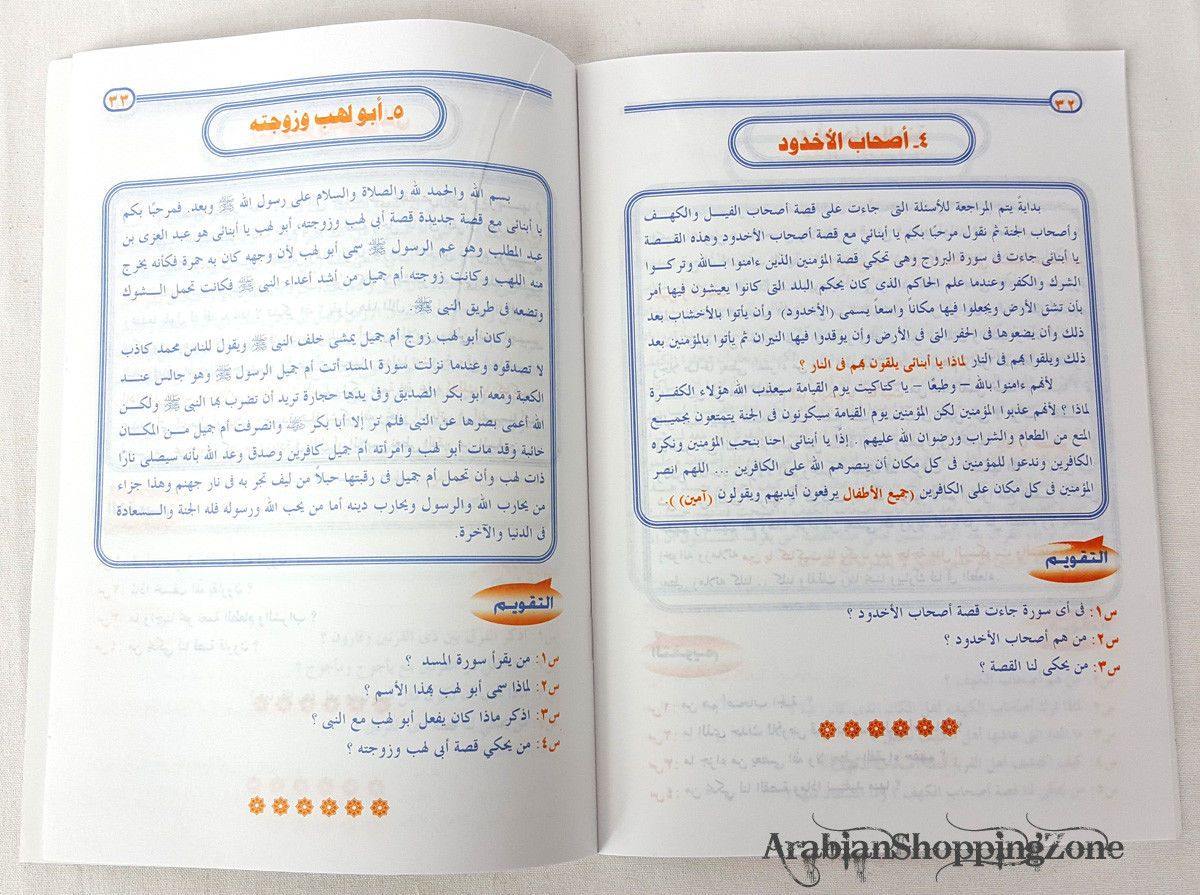 ٣٢
٤ـ أصحاب الأخدود
بدايةً يتم المراجعة للأسئلة التى جاءت على قصة أصحاب الفيل والكهف
وأصحاب الجنة ثم نقول مرحبًا بكم يا أبنائي مع قصة أصحاب الأخدود وهذه القــصة
يا أبنائى جاءت فى سورة البروج وهى تحكي قصة المؤمنين الذين ءامنوا بــالله وتركــوا
الشرك والكفر وعندما علم الحاكم الذى كان يحكم البلد التى كانوا يعيشون فيها أمر
بأن تشق الأرض ويجعلوا فيها مكاناً واسعاً يسمى (الأخدود) وأن يأتوا بالأخشاب بعد
ذلك وأن يضعوها فى الحفر التى فى الأرض وأن يوقدوا فيها النيران ثم يأتوا بالمؤمنين بعد
ذلك ويلقوا بهم فى النار لماذا يا أبنائى يلقون بهم فى النار ؟
لأنهم ءامنوا بالله – وطبعًا – يا كتاكيت يوم القيامة سيعذب الله هؤلاء الكفــرة
لماذا ؟ لأنهم عذبوا المؤمنين لكن المؤمنين يوم القيامة سيكونون فى الجنة يتمتعون بجميــع
المتع من الطعام والشراب ورضوان الله عليهم . إذًا يا أبنائى احنا بنحب المؤمنين ونكره
الكافرين وندعوا للمؤمنين فى كل مكان أن ينصرهم الله على الكافرين ... اللهم انصر
المؤمنين فى كل مكان على الكافرين (جميع الأطفال يرفعون أيديهم ويقولون (آمين) ).
التقويم
س١: فى أى سورة جاءت قصة أصحاب الأخدود ؟
س٢: من هم أصحاب الأخدود ؟
س٣: من يحكى لنا القصة ؟
٣٣
٥ـ أبو لهب وزوجته
بسم الله والحمد لله والصلاة والسلام على رسول الله ﷺ وبعد. فمرحبًا بكم
يا أبنائى مع قصة جديدة قصة أبى لهب وزوجته، أبو لهب يا أبنائى هو عبد العزى بن
عبد المطلب وهو عم الرسول ﷺ سمى أبو لهب لأن وجهه كان به حمرة فكأنه يخرج
منه اللهب وكانت زوجته أم جميل من أشد أعداء النبى ﷺ فكانت تحمل الــشوك
وتضعه فى طريق النبى ﷺ.
وكان أبو لهب زوج أم جميل يمشى خلف النبى ﷺ ويقول للناس محمد كاذب
لا تصدقوه وعندما نزلت سورة المسد أتت أم جميل الرسول ﷺ وهو جالس عنــد
الكعبة ومعه أبو بكر الصديق وفى يدها حجارة تريد أن تضرب بها النبى ﷺ ولكــن
الله أعمى بصرها عن النبى فلم تر إلا أبا بكر ﷺ وانصرفت أم جميل مــن المكــان
خائبة وقد مات أبو لهب وامرأته أم جميل كافرين وصدق وعد الله بأنه سيصلى نارًا
ذات لهب وأن تحمل أم جميل فى رقبتها حبلاً من ليف تجر به فى نار جهنم وهذا جزاء
من يحارب الله والرسول ويحارب دينه أما من يحب الله ورسوله فله الجنة والــسعادة
فى الدنيا والآخرة.
التقويم
س١: من يقرأ سورة المسد ؟
س٢: لماذا سمى أبو لهب بهذا الأسم ؟
س٣: اذكر ماذا كان يفعل أبو لهب مع النبى ؟
س٤: من يحكي قصة أبى لهب وزوجته ؟
ArabianShoppingZone